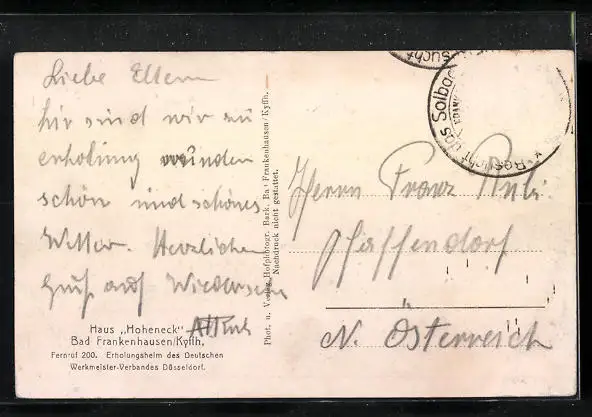 Liebe Eltern
hir sind wir zu
erholung wunder
schön und schönes
Wetter. Herzlichen
Gruß auf Wiedersehn
Haus „Hoheneck"
Bad Frankenhausen/Kyffh.
Fernruf 200. Erholungsheim des Deutschen
Werkmeister-Verbandes Düsseldorf.
Phot. u. Verlag Hofphotogr. Bark. Bad Frankenhausen/Kyffh.
Nachdruck nicht gestattet.
Besucht das Solbad
Herrn Franz
Pfaffendorf
N. Österreich